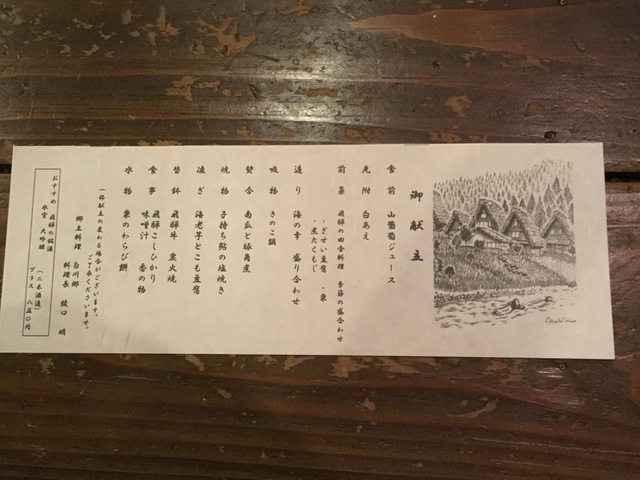 御献立
食前 山葡萄ジュース
先附 白あえ
前菜 飛騨の田舎料理 季節の盛合わせ
・ざぜい豆腐 ・栗
・煮たくもじ
造り 海の幸 盛り合わせ
吸物 きのこ鍋
賛合 南瓜と豚角煮
焼物 子持ち鮎の塩焼き
凌ぎ 海老芋とこも豆腐
替鉢 飛騨牛 炭火焼
食事 飛騨こしひかり
味噌汁 香の物
水物 栗のわらび餅
一部献立の変わる場合がございます。
ご了承くださいませ。
郷土料理 白川郷
料理長 綾口 明
おすすめ 飛騨の銘酒
氷室 大吟醸
(二木酒造)
グラス 八五〇円